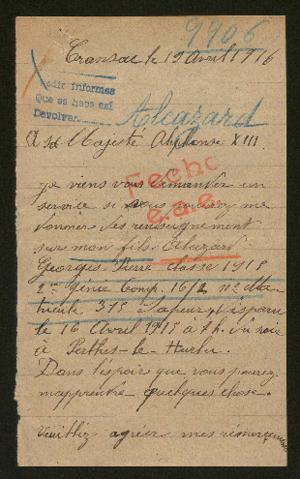 9906
Transac le 19 Avril 1916
Pedir informes
Que se hace así
Devolver
Alcazard
A sa Majesté Alphonse XIII
Je viens vous demander un
service si vous pouvez me
donner des renseignement
Fecho
sur mon fils Alcazard
Georges Pierre classe 1915
2e Génie Comp. 16/2 no Ma-
tricule 315 Sapeur disparu
le 16 Avril 1915 à 7h. du soir
à Perthes-le-Hurlu.
Dans l'espoir que vous pourrez
m'apprendre quelques chose.
Veuillez agréer mes